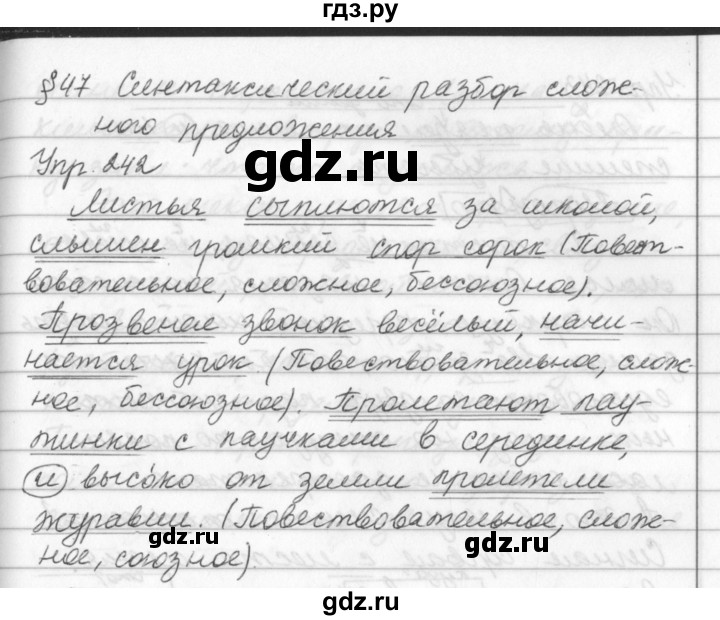 гдз.ру
§47 Синтаксический разбор слож-
ного предложения
Упр. 242
gdz.ru
Листья сыплются за школой,
слышен громкий спор сорок (Повест-
вовательное, сложное, бессоюзное).
Прозвенел звонок весёлый, начи-
нается урок. (Повествовательное, слож-
ное, бессоюзное). Пролетают пау-
тинки с паучками в серединке,
и высо́ко от земли пролетели
журавли. (Повествовательное, слож-
gdz.ru gdz.ru
ное, союзное).
gdz.ru